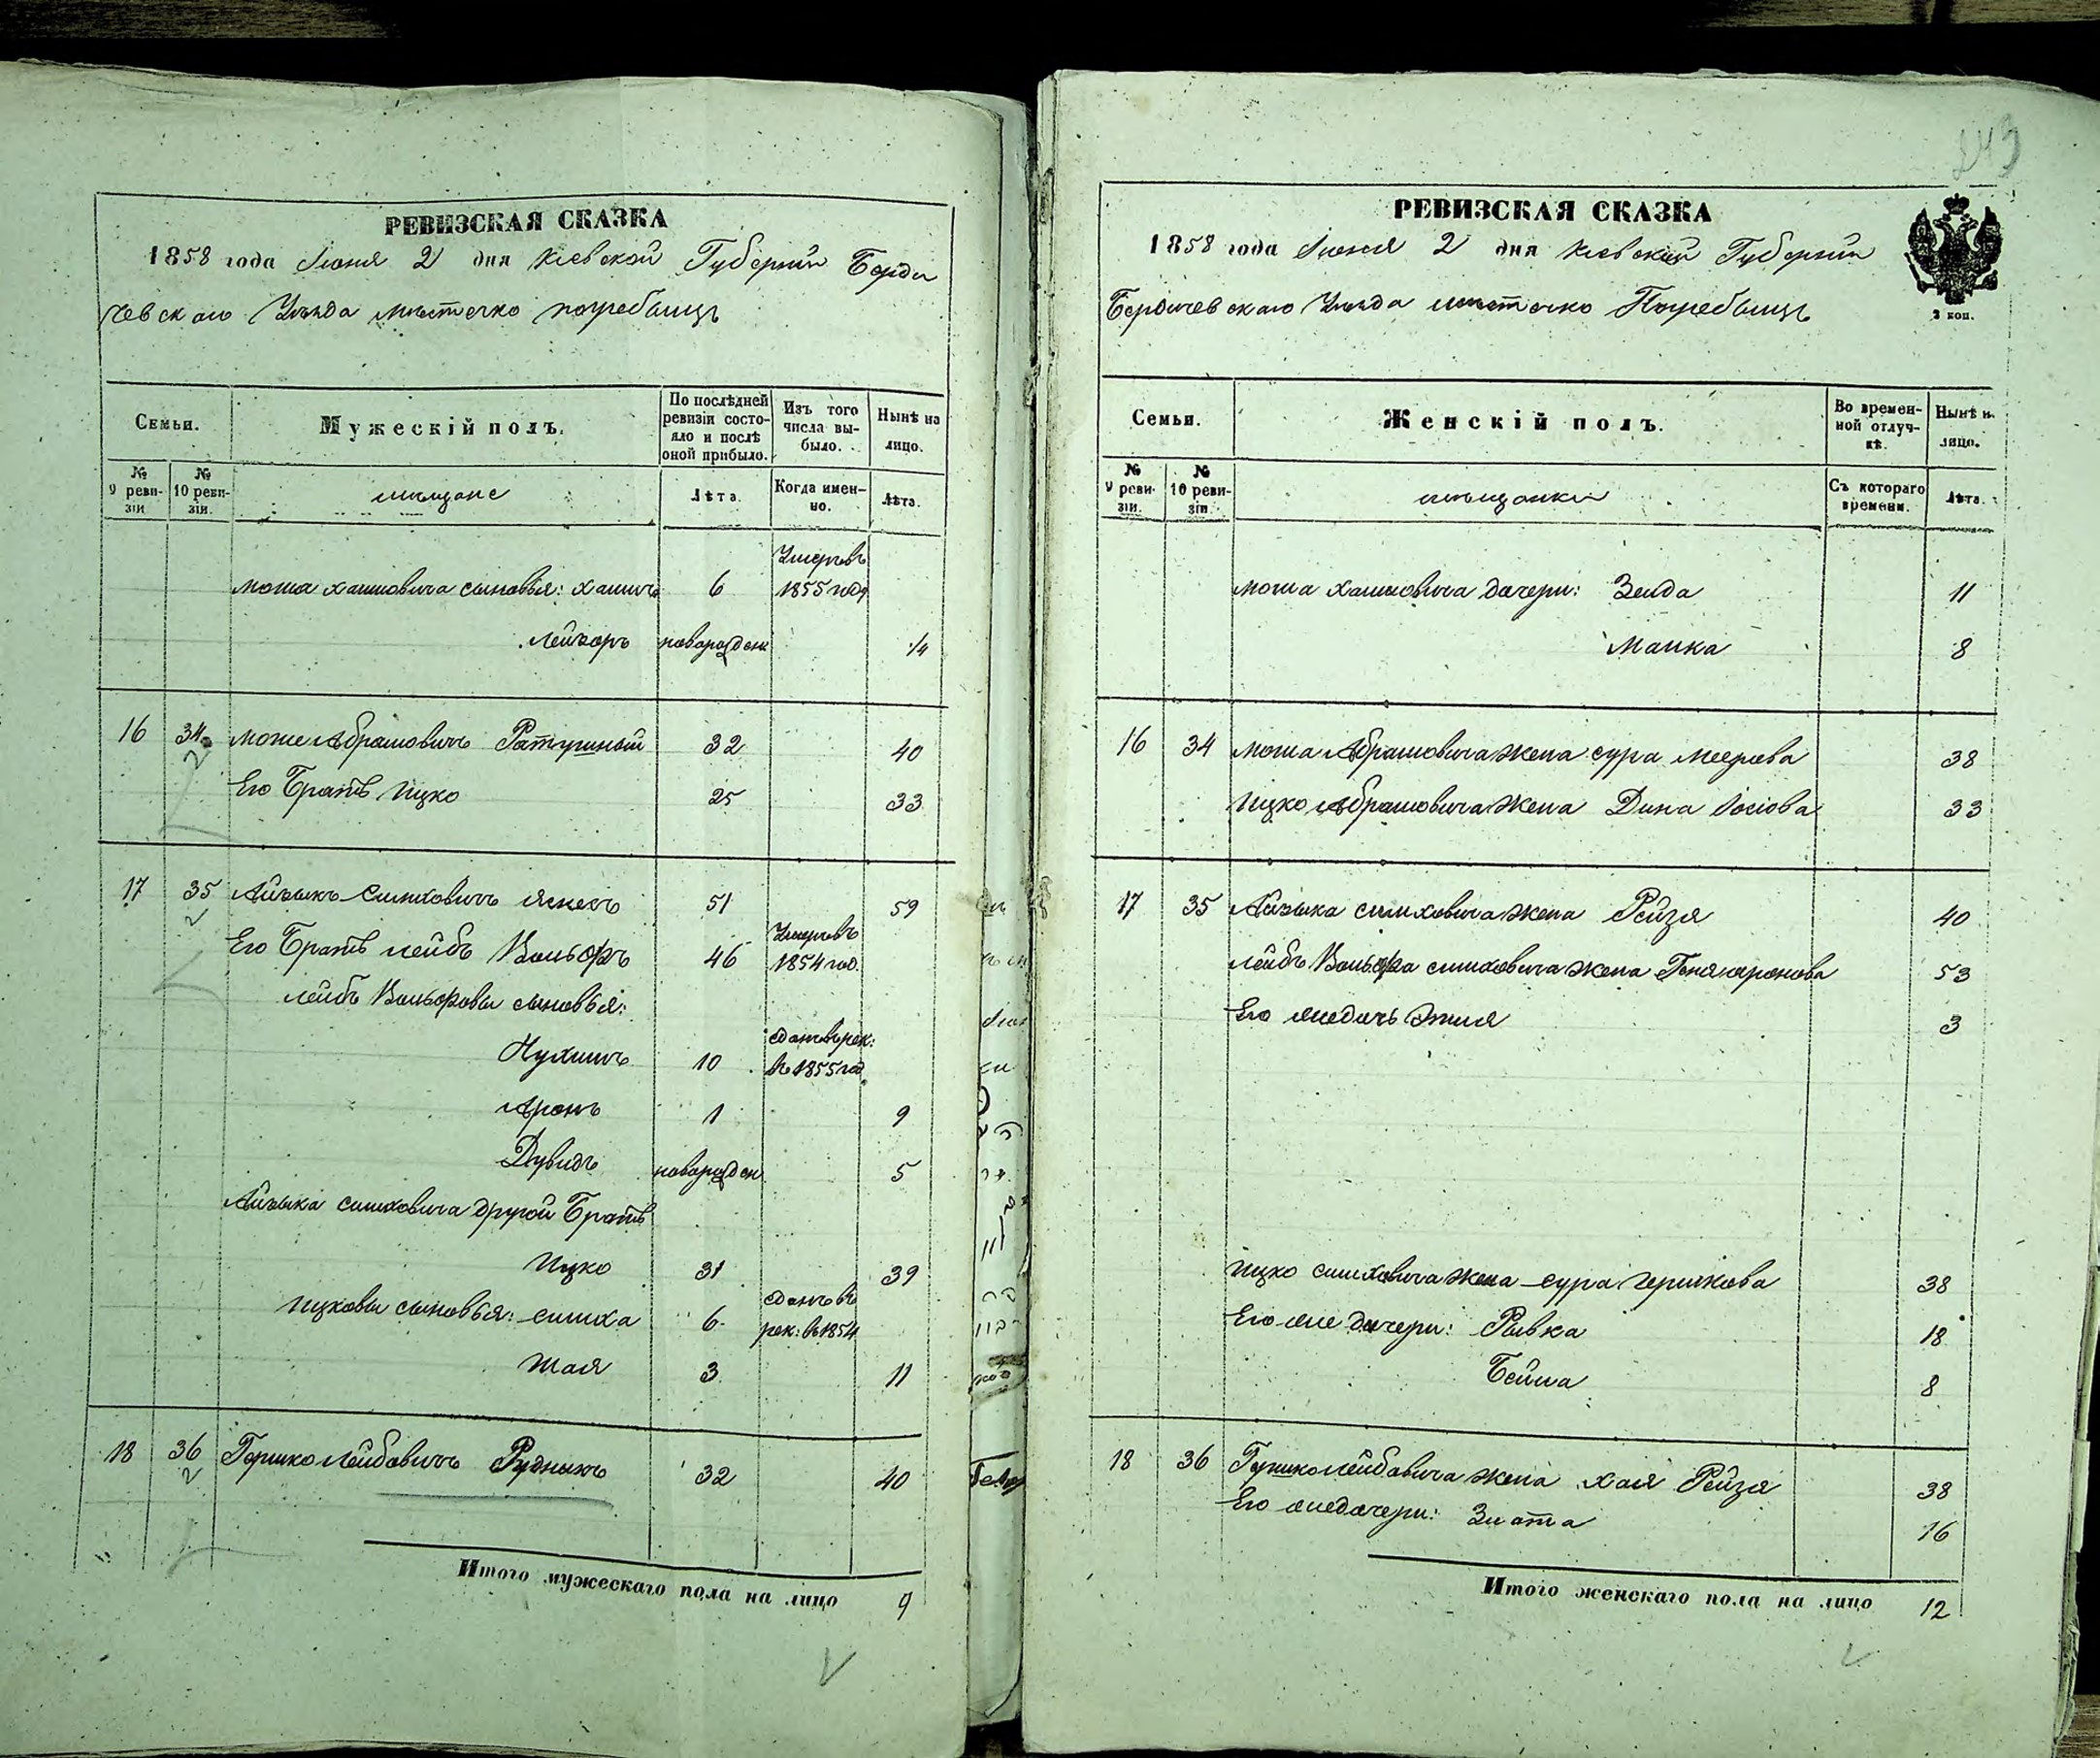 243
РЕВИЗСКАЯ СКАЗКА
1858 года Июня 2 дня Кіевской Губерніи Берди
чевскаго Уѣзда мѣстечко погребищъ
Семьи.
Мужескій полъ.
По послѣдней ревизіи состояло и послѣ оной прибыло.
Изъ того числа выбыло.
Нынѣ на лицо.
№ 9 ревизіи
№ 10 ревизіи.
мѣщане
Лѣта.
Когда именно.
Лѣта.
моша хаимовича сыновья: хаимъ 6 Умеръ въ 1855 году
Лейзоръ новорожден 1/4
16 34 моше Абрамовичъ Ратушный 32 40
Его Братъ Ицко 25 33
17 35 Айзыкъ Симховичъ 51 59
Его Братъ лейбъ Вольфъ 46 Умеръ въ 1854 год.
лейбъ Вольфовы сыновья:
Нухимъ 10 сдан въ рек: въ 1855 год
Аронъ 1 9
Дувидъ новорожден 5
Айзыка симховича другой Братъ
Ицко 31 39
Ицковы сыновья: симха 6 сданъ въ рек: въ 1854
Шая 3 11
18 36 Гершко Лейбовичъ Рудныкъ 32 40
Итого мужескаго пола на лицо 9
РЕВИЗСКАЯ СКАЗКА
1858 года Июня 2 дня Кіевской Губерніи
Бердичевскаго Уѣзда мѣстечко Погребищъ
2 коп.
Семьи.
Женскій полъ.
Во временной отлучкѣ.
Нынѣ н. лицо.
№ 9 ревизіи.
№ 10 ревизіи.
мѣщанки
Съ котораго времени.
Лѣта.
моша хаимовича дочери: Зелда 11
Малка 8
16 34 моша Абрамовича жена сура меерова 38
Ицко Абрамовича жена Дина Іосіова 33
17 35 Айзыка симховича жена Рейзя 40
лейбъ Вольфа симховича жена Геня аронова 53
Его же дочь Этля 3
Ицко симховича жена сура гершкова 38
Его же дочери: Рывка 18
Бейла 8
18 36 Гершко лейбовича жена хая Рейзя 38
Его же дочери: Злота 16
Итого женскаго пола на лицо 12